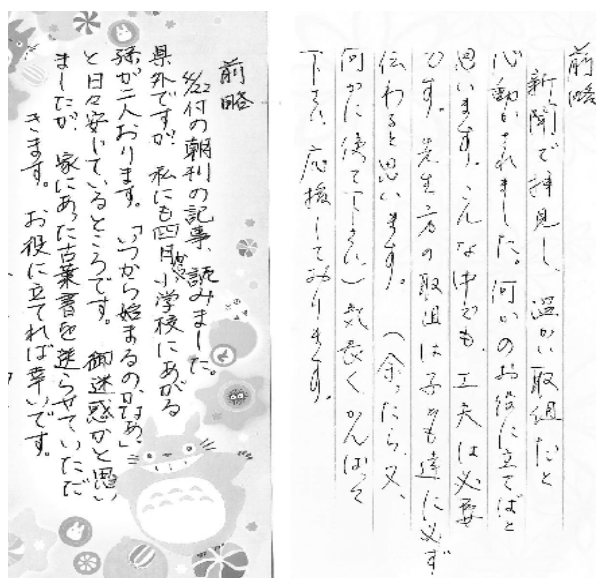 前略
新聞で拝見し、温かい取組だと
心動かされました。何かのお役に立てばと
思います。こんな中でも、工夫は必要
です。先生方の取組は子ども達に必ず
伝わると思います。(余ったら、又、
何かに使って下さい)気長く、がんばって
下さい。応援しております。
前略
4/22付の朝刊の記事、読みました。
県外ですが、私にも四月から小学校にあがる
孫が二人おります。「いつから始まるのかなあ」
と日々案じているところです。御迷惑かと思い
ましたが、家にあった古葉書を送らせていただ
きます。お役に立てれば幸いです。